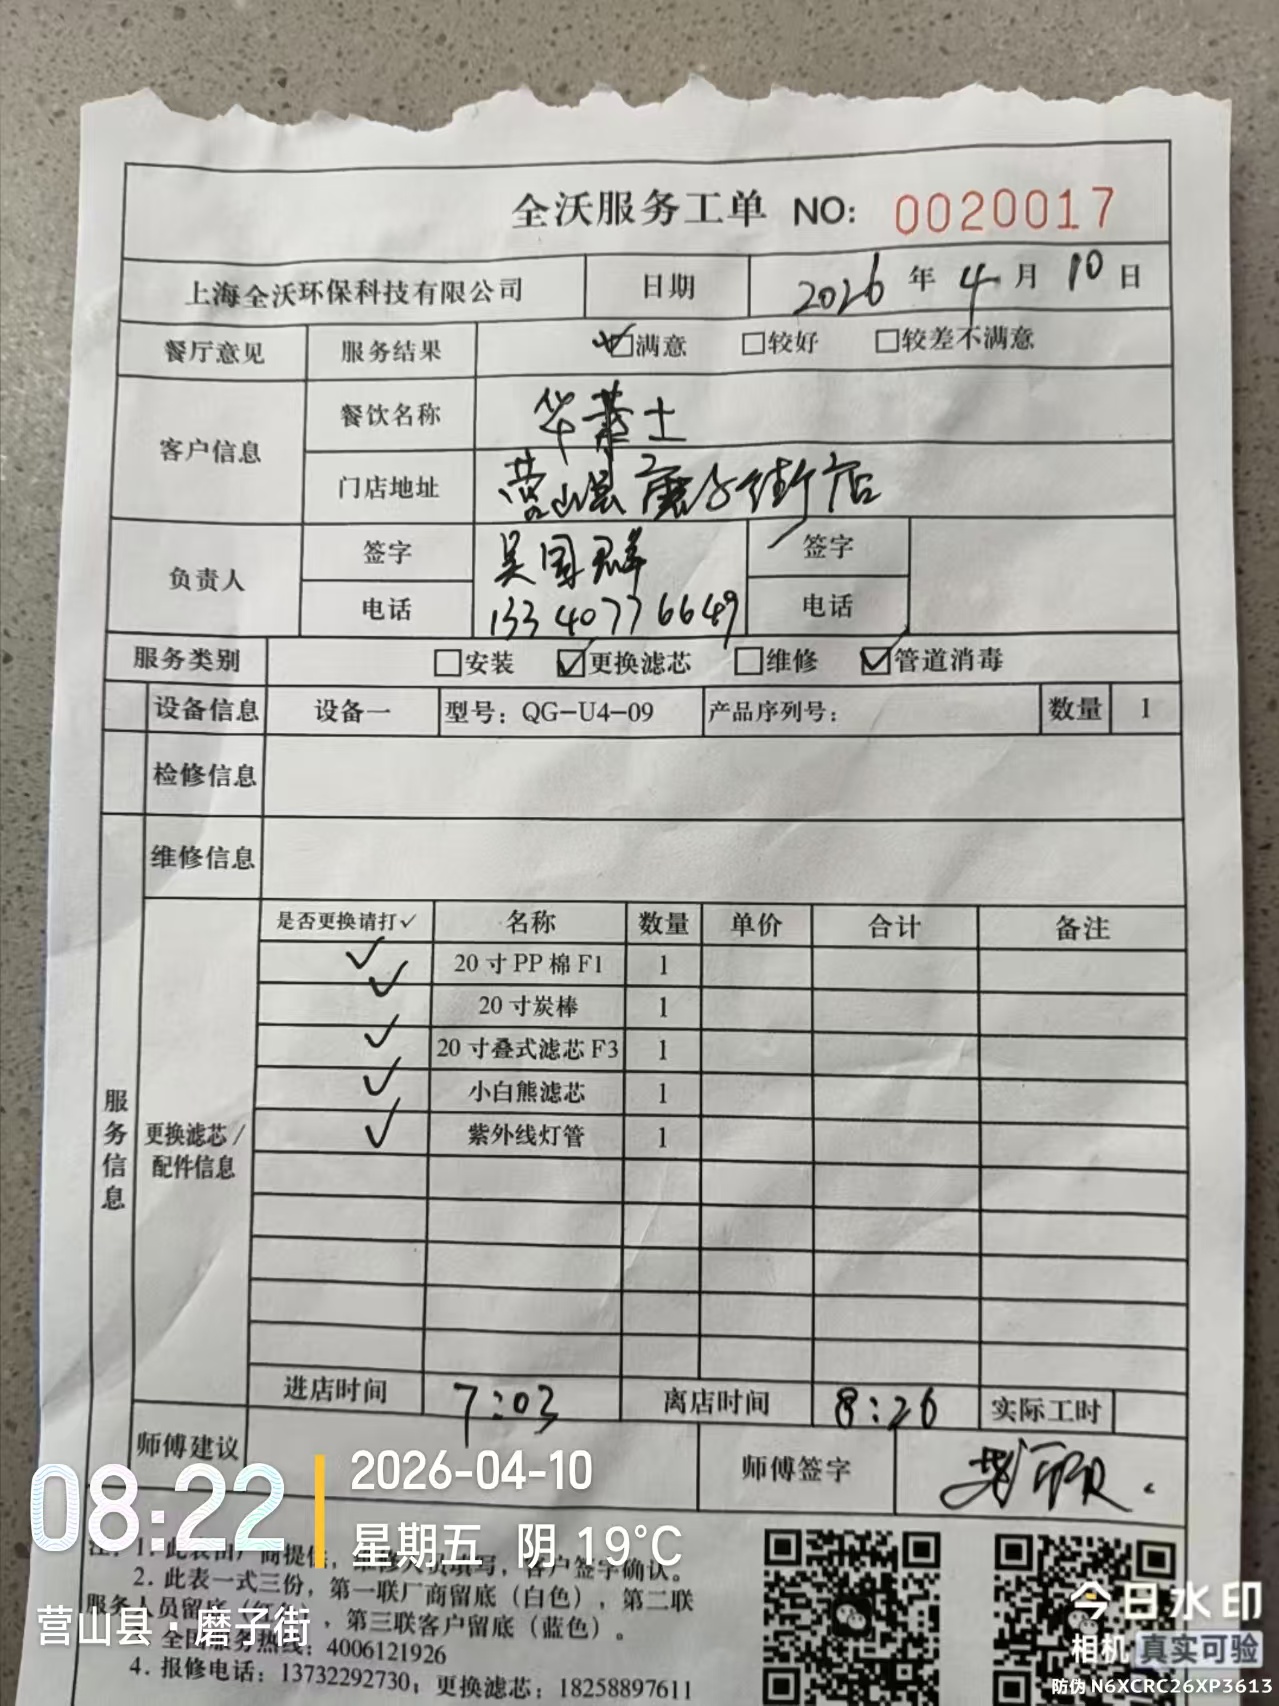 全沃服务工单 NO: 0020017
上海全沃环保科技有限公司 日期 2026年4月10日
餐厅意见 服务结果 ☑满意 □较好 □较差不满意
客户信息 餐饮名称 华莱士
门店地址 营山县磨子街店
负责人 签字 吴国群 签字
电话 13340776649 电话
服务类别 □安装 ☑更换滤芯 □维修 ☑管道消毒
设备信息 设备一 型号：QG-U4-09 产品序列号： 数量 1
检修信息
维修信息
服务信息
更换滤芯/配件信息
是否更换请打✓ 名称 数量 单价 合计 备注
✓ 20寸PP棉F1 1
✓ 20寸炭棒 1
✓ 20寸叠式滤芯F3 1
✓ 小白熊滤芯 1
✓ 紫外线灯管 1
进店时间 7:03 离店时间 8:26 实际工时
师傅建议 师傅签字
注：1. 此表由厂商提供，维修人员填写，客户签字确认。
2. 此表一式三份，第一联厂商留底（白色），第二联
服务人员留底（红色），第三联客户留底（蓝色）。
全国服务热线：4006121926
4. 报修电话：13732292730；更换滤芯：18258897611
08:22
2026-04-10
星期五 阴 19°C
营山县·磨子街
今日水印
相机 真实可验
防伪 N6XCRC26XP3613